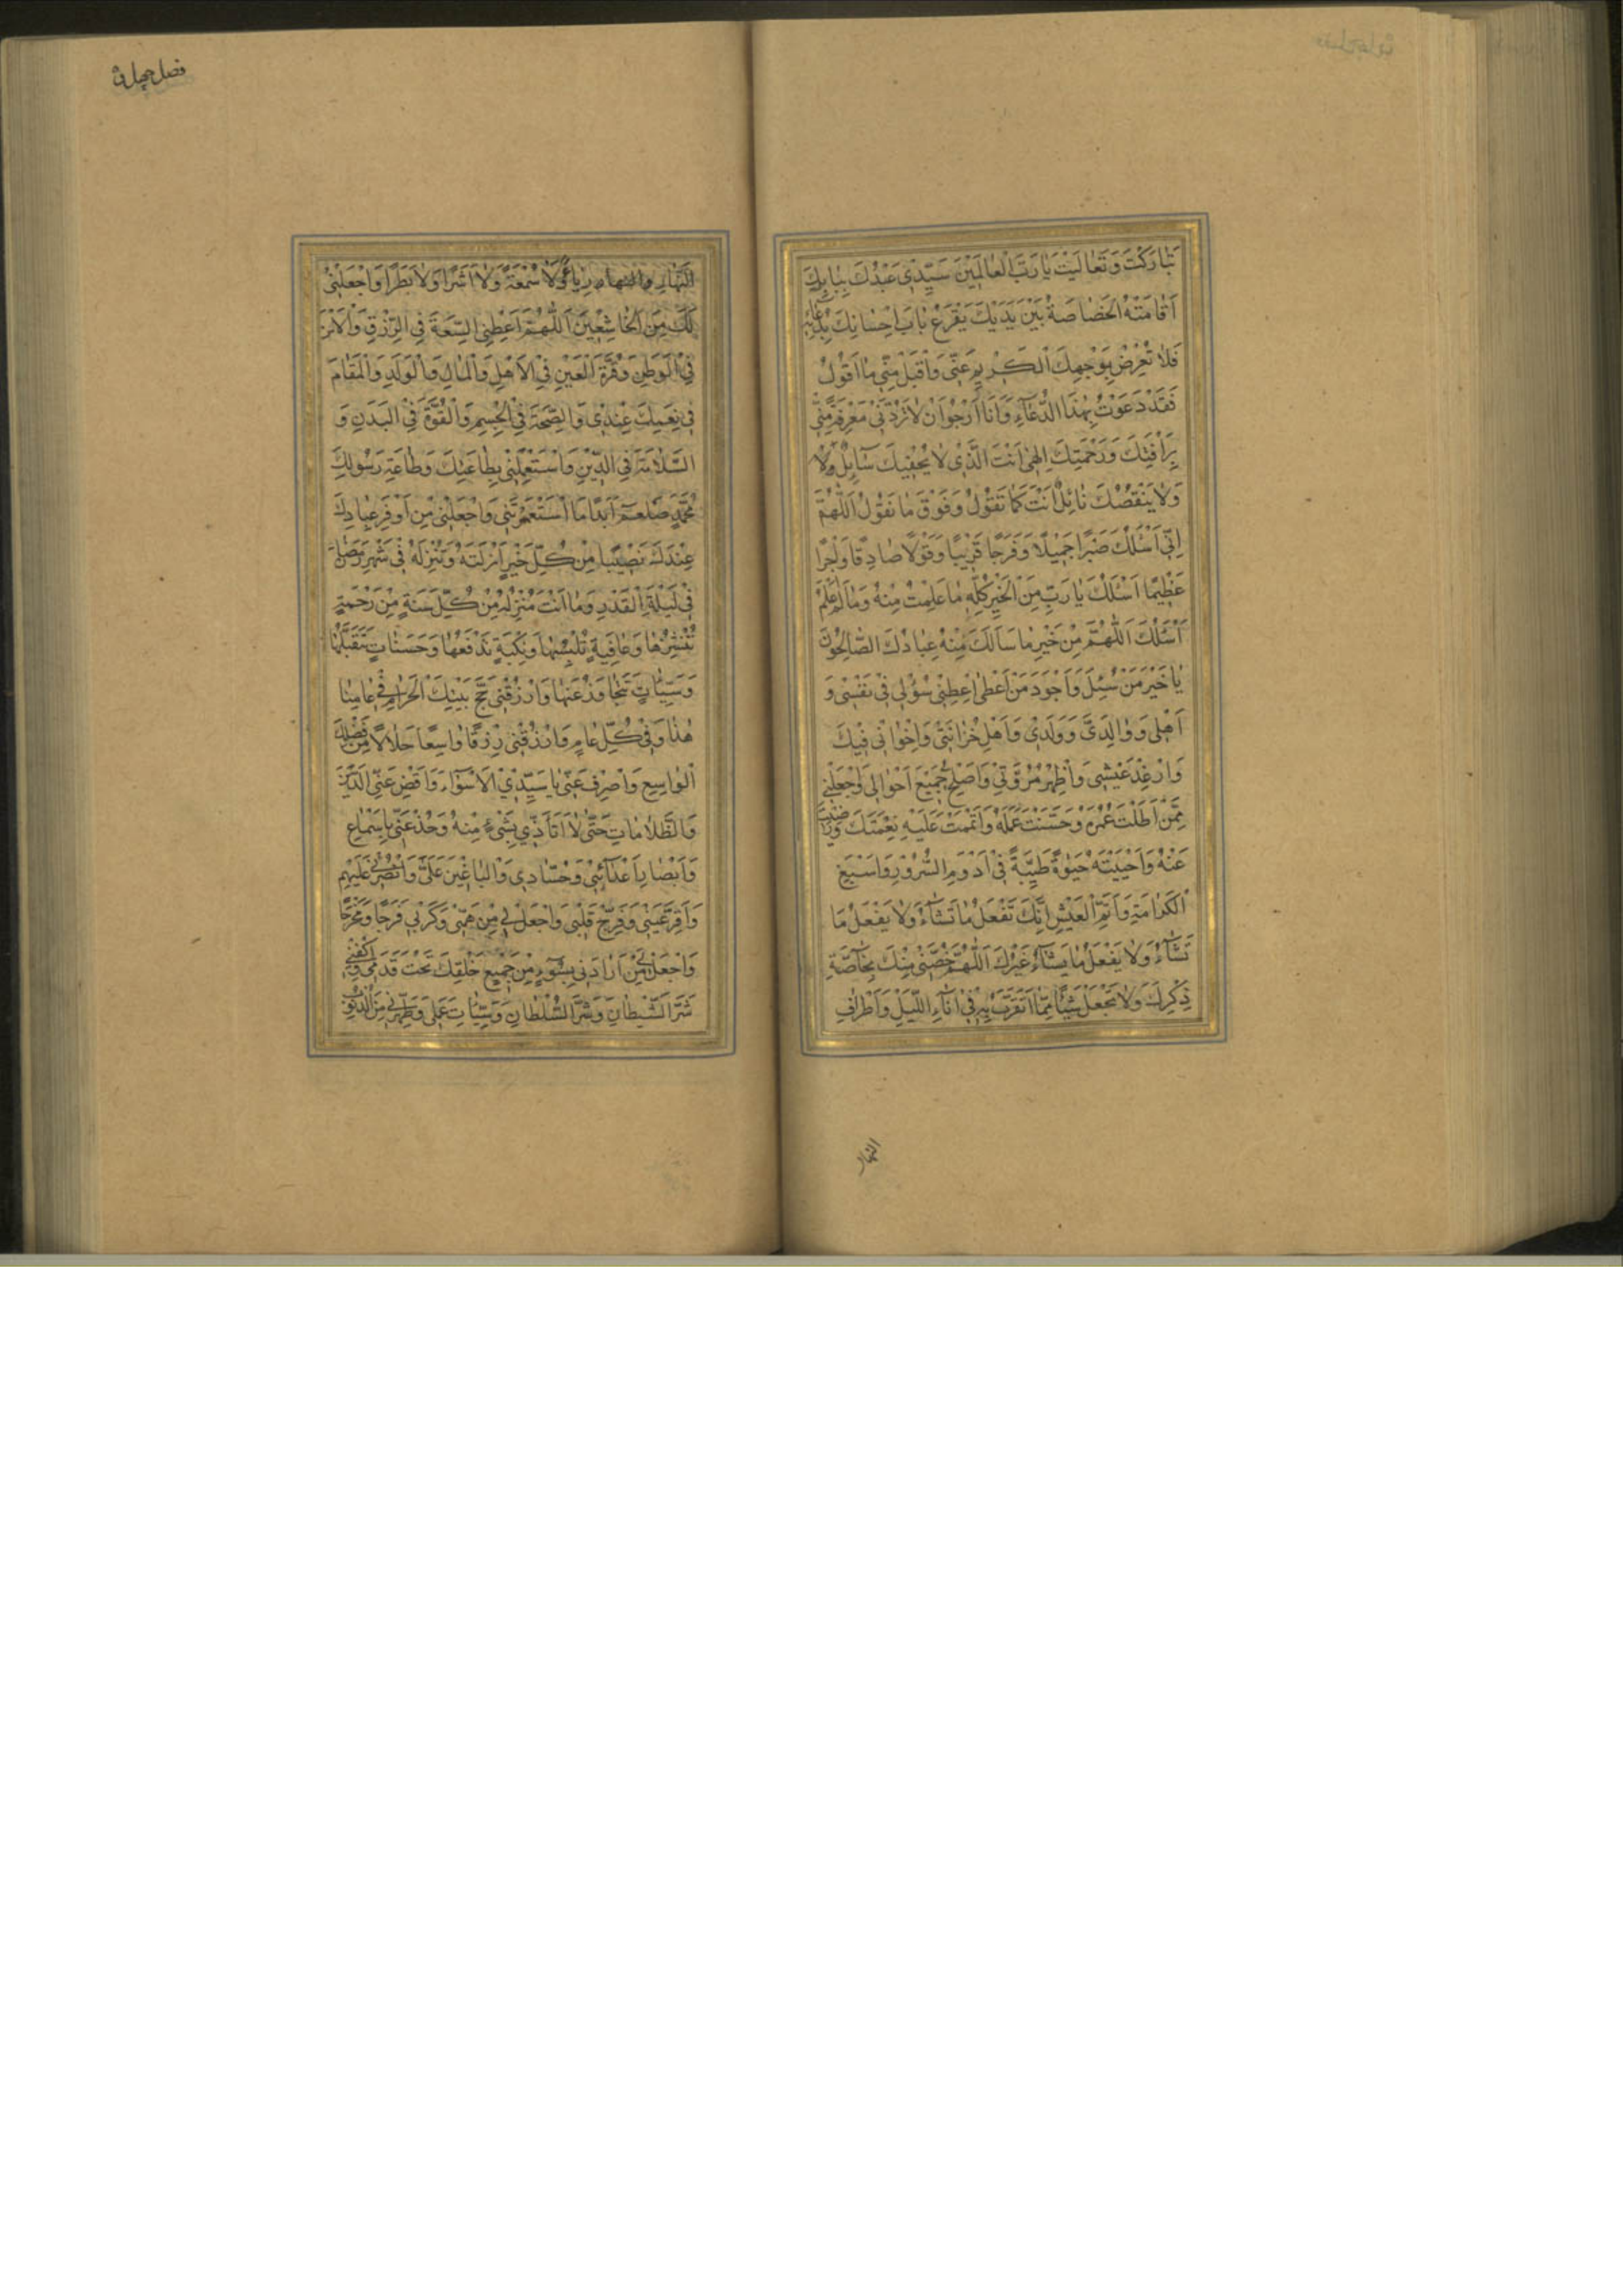 تَبٰارَكْتَ وَتَعٰالَيْتَ يٰا رَبَّ الْعٰالَمِيْنَ سَيِّدِي عَبْدُكَ بِبٰابِكَ
اَقٰامَتْهُ الْخَصٰاصَةُ بَيْنَ يَدَيْكَ يَقْرَعُ بٰابَ اِحْسٰانِكَ بِدُعٰائِهِ
فَلاٰ تُعْرِضْ بِوَجْهِكَ الْكَرِيْمِ عَنِّي وَاَقْبَلْ مِنِّي مٰا اَقُوْلُ
فَقَدْ دَعَوْتُ بِهٰذَا الدُّعٰاءِ وَاَنَا اَرْجُوْ اَنْ لاٰ تَرُدَّنِي مَعْرِفَةً مِنِّي
بِرَأْفَتِكَ وَرَحْمَتِكَ اِلٰهِي اَنْتَ الَّذِي لاٰ يُحْفِيْكَ سٰائِلٌ وَلاٰ
وَلاٰ يَنْقُصُكَ نٰائِلٌ اَنْتَ كَمٰا تَقُوْلُ وَفَوْقَ مٰا نَقُوْلُ اَللّٰهُمَّ
اِنِّي اَسْئَلُكَ صَبْرًا جَمِيْلاً وَفَرَجًا قَرِيْبًا وَقَوْلاً صٰادِقًا وَاَجْرًا
عَظِيْمًا اَسْئَلُكَ يٰا رَبِّ مِنَ الْخَيْرِ كُلِّهِ مٰا عَلِمْتُ مِنْهُ وَمٰا لَمْ اَعْلَمْ
اَسْئَلُكَ اَللّٰهُمَّ مِنْ خَيْرِ مٰا سَاَلَكَ مِنْهُ عِبٰادُكَ الصّٰالِحُوْنَ
يٰا خَيْرَ مَنْ سُئِلَ وَاَجْوَدَ مَنْ اَعْطٰى اَعْطِنِي سُؤْلِي فِي نَفْسِي وَ
اَهْلِي وَوٰالِدَيَّ وَوَلَدِي وَاَهْلِ حُزٰانَتِي وَاِخْوٰانِي فِيْكَ
وَاَرْغِدْ عَيْشِي وَاَظْهِرْ مُرُوَّتِي وَاَصْلِحْ جَمِيْعَ اَحْوٰالِي وَاجْعَلْنِي
مِمَّنْ اَطَلْتَ عُمْرَهُ وَحَسَّنْتَ عَمَلَهُ وَاَتْمَمْتَ عَلَيْهِ نِعْمَتَكَ وَرَضِيْتَ
عَنْهُ وَاَحْيَيْتَهُ حَيٰوةً طَيِّبَةً فِي اَدْوَمِ السُّرُوْرِ وَاَسْبَغِ
الْكَرٰامَةِ وَاَتَمِّ الْعَيْشِ اِنَّكَ تَفْعَلُ مٰا تَشٰاءُ وَلاٰ يَفْعَلُ مٰا
تَشٰاءُ وَلاٰ يَفْعَلُ مٰا يَشٰاءُ غَيْرُكَ اَللّٰهُمَّ خُصَّنِي مِنْكَ بِخٰاصَّةِ
ذِكْرِكَ وَلاٰ تَجْعَلْ شَيْئًا مِمّٰا اَتَقَرَّبُ بِهِ فِي اٰنٰاءِ اللَّيْلِ وَاَطْرٰافِ
النهار
فصل چهل و
النَّهٰارِ رِيٰاءً وَلاٰ سُمْعَةً وَلاٰ اَشَرًا وَلاٰ بَطَرًا وَاجْعَلْنِي
لَكَ مِنَ الْخٰاشِعِيْنَ اَللّٰهُمَّ اَعْطِنِي السِّعَةَ فِي الرِّزْقِ وَالْاَمْنَ
فِي الْوَطَنِ وَقُرَّةَ الْعَيْنِ فِي الْاَهْلِ وَالْمٰالِ وَالْوَلَدِ وَالْمَقٰامَ
فِي نِعَمِكَ عِنْدِي وَالصِّحَّةَ فِي الْجِسْمِ وَالْقُوَّةَ فِي الْبَدَنِ وَ
السَّلاٰمَةَ فِي الدِّيْنِ وَاسْتَعْمِلْنِي بِطٰاعَتِكَ وَطٰاعَةِ رَسُوْلِكَ
مُحَمَّدٍ صَلعم اَبَدًا مَا اسْتَعْمَرْتَنِي وَاجْعَلْنِي مِنْ اَوْفَرِ عِبٰادِكَ
عِنْدَكَ نَصِيْبًا مِنْ كُلِّ خَيْرٍ اَنْزَلْتَهُ وَتُنْزِلُهُ فِي شَهْرِ رَمَضٰانَ
فِي لَيْلَةِ الْقَدْرِ وَمٰا اَنْتَ مُنْزِلُهُ مِنْ كُلِّ سَنَةٍ مِنْ رَحْمَةٍ
تَنْشُرُهٰا وَعٰافِيَةٍ تُلْبِسُهٰا وَنَكْبَةٍ تَدْفَعُهٰا وَحَسَنٰاتٍ تَتَقَبَّلُهٰا
وَسَيِّئٰاتٍ تَتَجٰاوَزُ عَنْهٰا وَارْزُقْنِي حَجَّ بَيْتِكَ الْحَرٰامِ فِي عٰامِنٰا
هٰذٰا وَفِي كُلِّ عٰامٍ وَارْزُقْنِي رِزْقًا وٰاسِعًا حَلاٰلاً مِنْ فَضْلِكَ
الْوٰاسِعِ وَاصْرِفْ عَنِّي يٰا سَيِّدِي الْاَسْوٰاءَ وَاقْضِ عَنِّي الدَّيْنَ
وَالظُّلاٰمٰاتِ حَتّٰى لاٰ اَتَاَذّٰي بِشَيْءٍ مِنْهُ وَخُذْ عَنِّي بِاَسْمٰاعِ
وَاَبْصٰارِ اَعْدٰائِي وَحُسّٰادِي وَالْبٰاغِيْنَ عَلَيَّ وَانْصُرْنِي عَلَيْهِمْ
وَاَقِرَّ عَيْنِي وَفَرِّحْ قَلْبِي وَاجْعَلْ لِي مِنْ هَمِّي وَكَرْبِي فَرَجًا وَمَخْرَجًا
وَاجْعَلْ مَنْ اَرٰادَنِي بِسُوْءٍ مِنْ جَمِيْعِ خَلْقِكَ تَحْتَ قَدَمَيَّ وَاكْفِنِي
شَرَّ الشَّيْطٰانِ وَشَرَّ السُّلْطٰانِ وَسَيِّئٰاتِ عَمَلِي وَطَهِّرْنِي مِنَ الذُّنُوْبِ